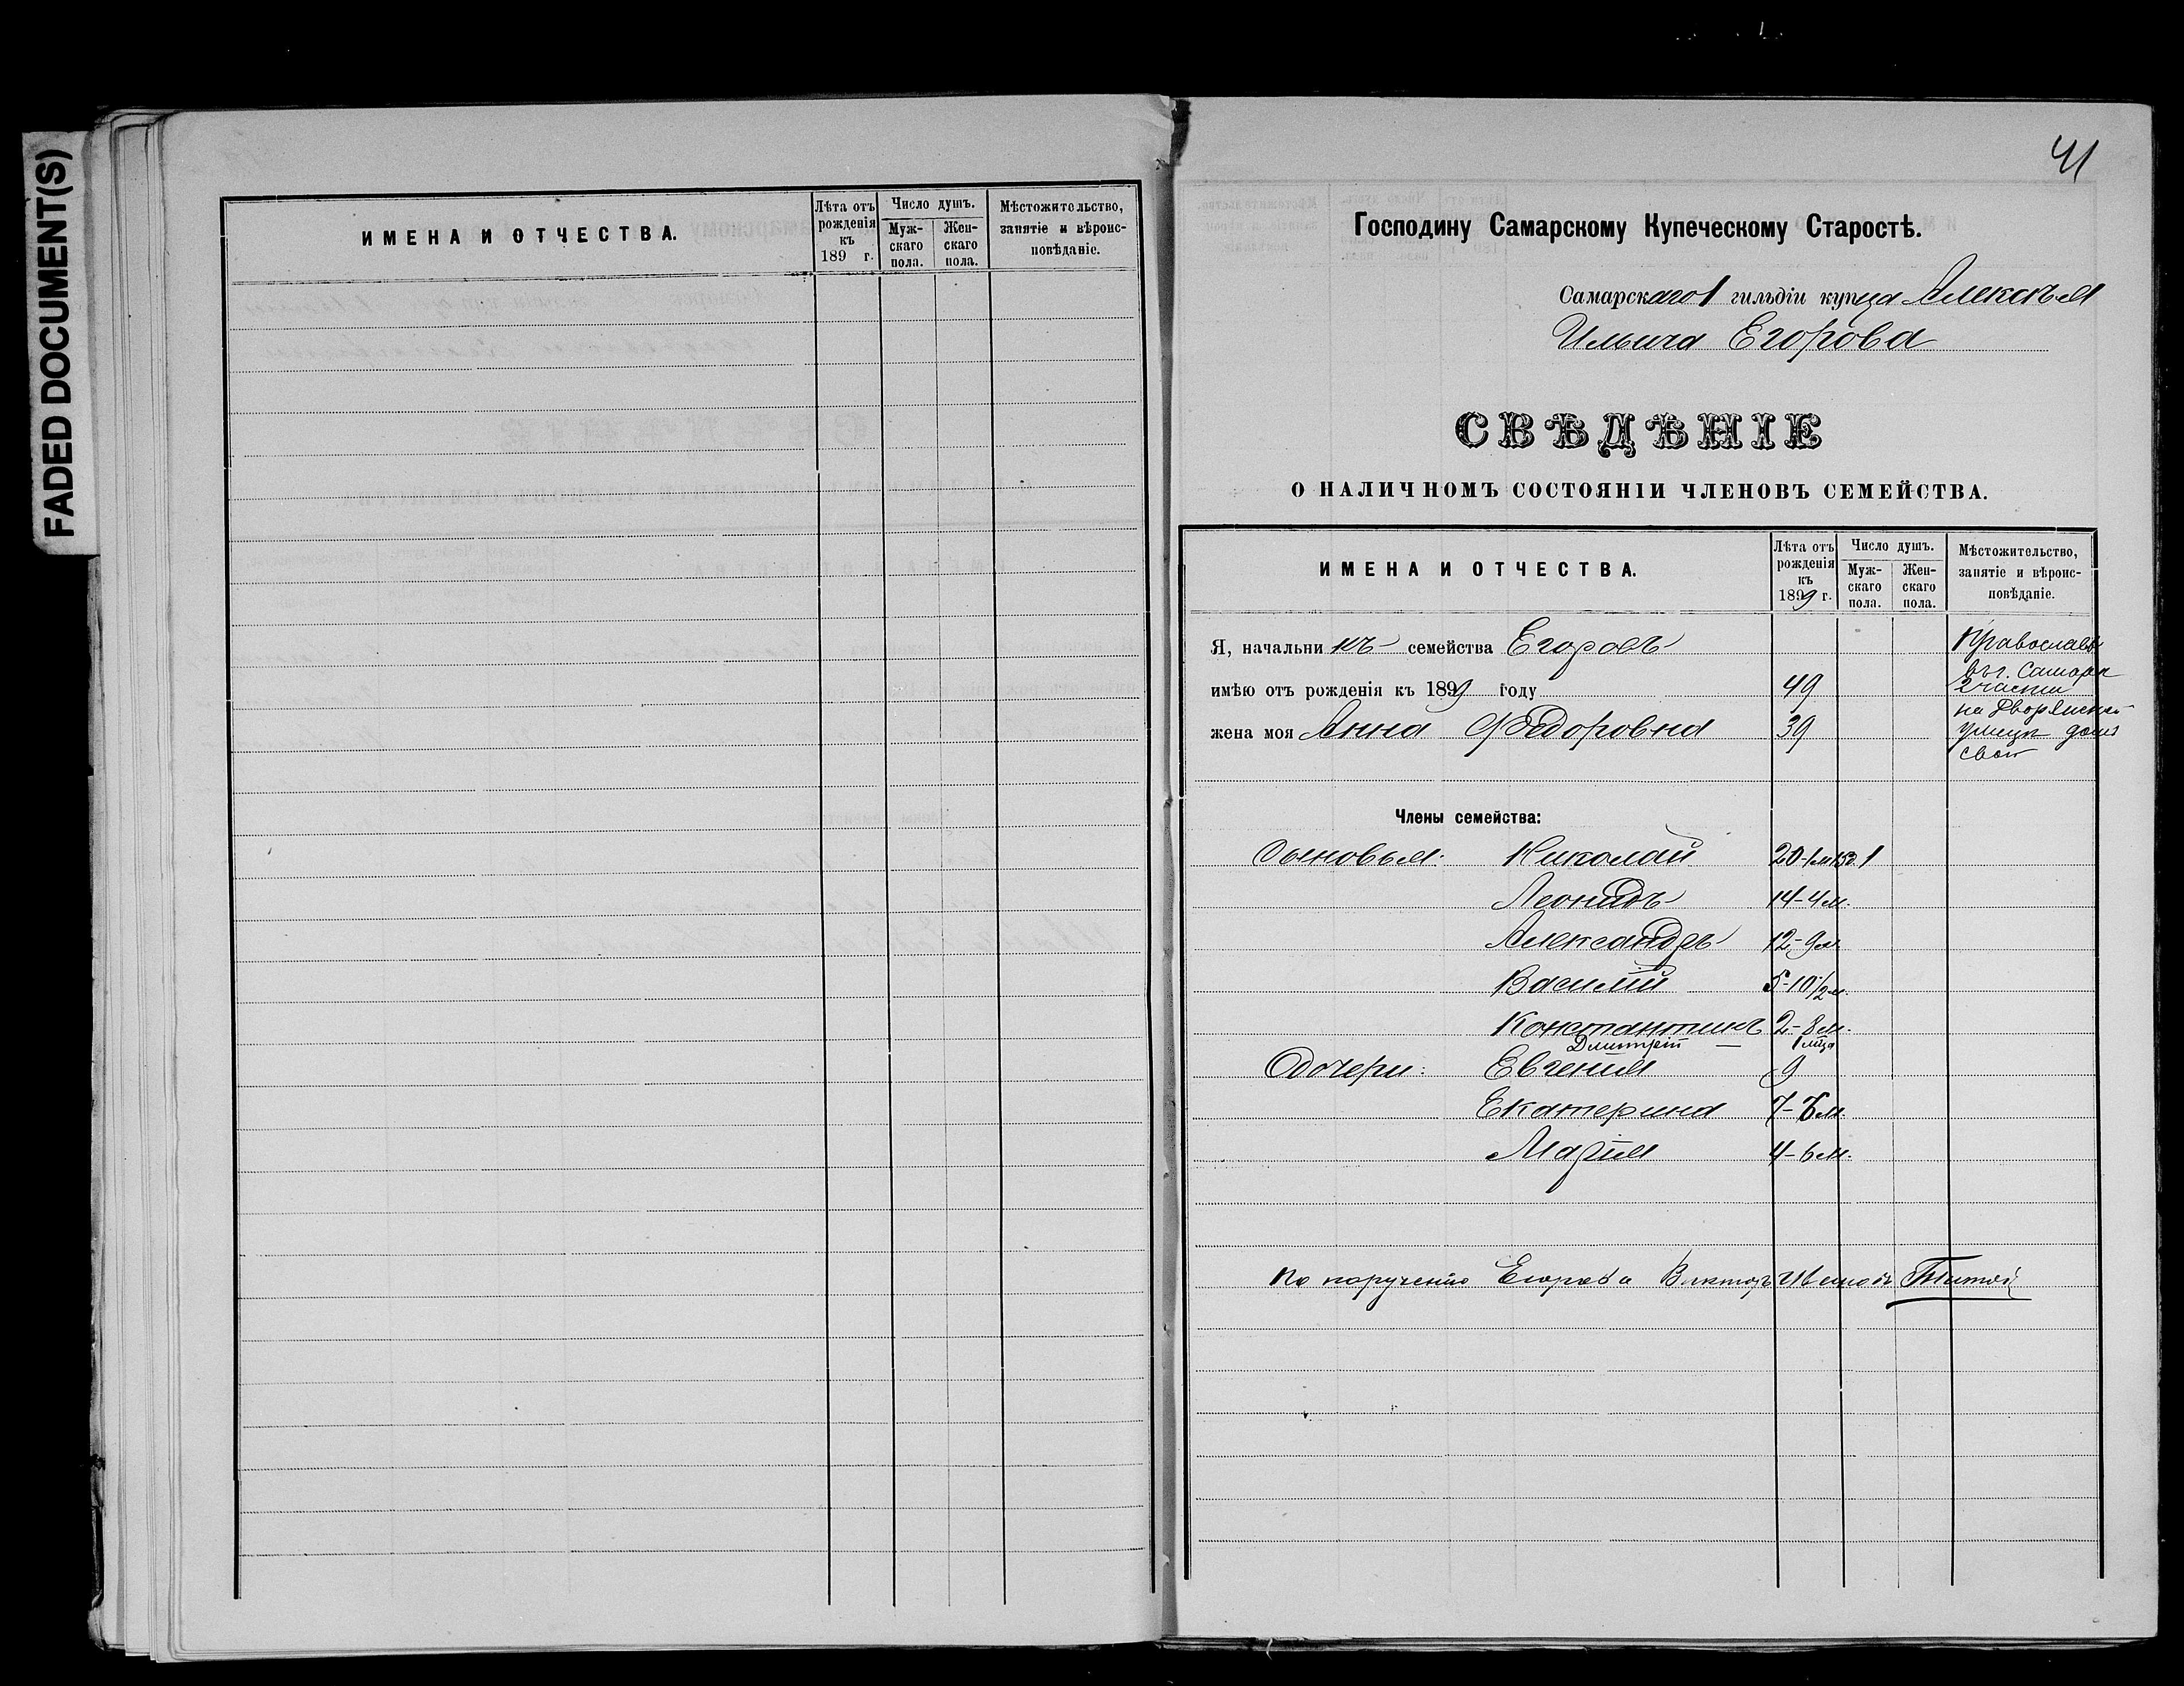 FADED DOCUMENT(S)
ИМЕНА И ОТЧЕСТВА.
Лѣта отъ рожденія къ 189 г.
Число душъ.
Муж-скаго пола.
Жен-скаго пола.
Мѣстожительство, занятіе и вѣроис-повѣданіе.
41
Господину Самарскому Купеческому Старостѣ.
Самарскаго 1 гильдіи купца Алексѣя
Ильича Егорова
СВѢДѢНІЕ
О НАЛИЧНОМЪ СОСТОЯНІИ ЧЛЕНОВЪ СЕМЕЙСТВА.
ИМЕНА И ОТЧЕСТВА.
Лѣта отъ рожденія къ 1899 г.
Число душъ.
Муж-скаго пола.
Жен-скаго пола.
Мѣстожительство, занятіе и вѣроис-повѣданіе.
Я, начальникъ семейства Егоровъ
Православ
въ г. Самарѣ
имѣю отъ рожденія къ 1899 году 49
2 части
на Дворянской
жена моя Анна Федоровна 39
улицѣ домъ
свой
Члены семейства:
Сыновья: Николай 20-1м
Леонидъ 14-4м.
Александръ 12-9м.
Василій 5-10 1/2м.
Константинъ 2-8м.
Дмитрій 1 мца
Дочери: Евгенія 9
Екатерина 7-6м.
Марія 4-6м.
По порученію Егорова Викторъ